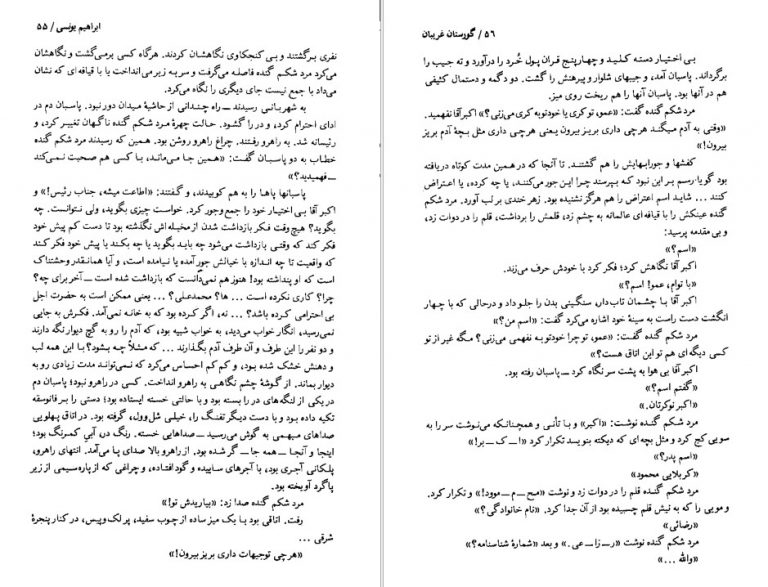 ابراهیم یونسی / ۵۵
نفری برگشتند و بی کنجکاوی نگاهشان کردند. هرگاه کسی برمی‌گشت و نگاهشان
می‌کرد مرد شکم گنده فاصله می‌گرفت و سر به زیر می‌انداخت یا با قیافه ای که نشان
می‌داد با جمع نیست جای دیگری را نگاه می‌کرد.
به شهربانی رسیدند ــ راه چندانی از حاشیهٔ میدان دور نبود. پاسبان دم در
ادای احترام کرد، و در را گشود. حالت چهرهٔ مرد شکم گنده ناگهان تغییر کرد، و
رئیسانه شد. به راهرو رفتند. چراغ راهرو روشن بود. همین که رسیدند مرد شکم گنده
خطاب به دو پاسبان گفت: «همین جا می‌مانند، با کسی هم صحبت نمی‌کند
ــ فهمیدید؟»
پاسبانها پاها را به هم کوبیدند، و گفتند: «اطاعت میشه، جناب رئیس!» و
اکبر آقا بی اختیار خود را جمع و جور کرد. خواست چیزی بگوید، ولی نتوانست. چه
بگوید؟ هیچ وقت فکر بازداشت شدن از مخیله‌اش نگذشته بود تا دست کم پیش خود
فکر کند که وقتی بازداشت می‌شود چه باید بگوید یا چه بکند یا پیش خود فکر کند
که واقعیت تا چه اندازه با خیالش جور آمده یا نیامده است، و آیا همانقدر وحشتناک
است که او پنداشته بود! هنوز هم نمی‌دانست که بازداشت شده است ــ آخر برای چه؟
چرا؟ کاری نکرده است ... ها؟ محمدعلی؟ ... یعنی ممکن است به حضرت اجل
بی احترامی کرده باشد؟ ... نه، اگر کرده بود که به خانه نمی‌آمد. فکرش به جایی
نمی‌رسید، انگار خواب می‌دید، به خواب شبیه بود، که آدم را رو به گچ دیوار نگه دارند
و دو نفر را این طرف و آن طرف آدم بگذارند ... که مثلاً چه بشود؟ با این همه لب
و دهنش خشک شده بود، و کم کم احساس می‌کرد که نمی‌تواند مدت زیادی رو به
دیوار بماند. از گوشهٔ چشم نگاهی به راهرو انداخت. کسی در راهرو نبود؛ پاسبان دم
در یکی از لنگه‌های در را بسته بود و با حالتی خسته ایستاده بود؛ دستی را بر فانوسقه
تکیه داده بود و با دست دیگر تفنگ را، خیلی شل و ول، گرفته بود. در اتاق پهلویی
صداهای مبهمی به گوش می‌رسید ــ صداهایی خسته. رنگ در، آبی کمرنگ بود؛
اینجا و آنجا ــ همه جا ــ گر شده بود. از راهرو بالا صدای پا می‌آمد. انتهای راهرو،
پلکانی آجری بود، با آجرهای ساییده و گود افتاده، و چراغی که از پاره سیمی از زیر
پاگرد آویخته بود.
مرد شکم گنده صدا زد: «بیاریدش تو!»
رفت. اتاقی بود با یک میز ساده از چوب سفید، پر لک و پیس، در کنار پنجرهٔ
شرقی ...
«هرچی توجیهات داری بریز بیرون!»
۵۶ / گورستان غریبان
بی اختیار دسته کلید و چهار پنج قران پول خُرد را درآورد و ته جیب را
برگرداند. پاسبان آمد، و جیبهای شلوار و پیرهنش را گشت. دو دگمه و دستمال کثیفی
هم در آنها بود. پاسبان آنها را هم ریخت روی میز.
مرد شکم گنده گفت: «عمو، تو کری یا خودتو به کری می‌زنی؟» اکبرآقا نفهمید.
«وقتی به آدم میگند هرچی داری بریز بیرون یعنی هرچی داری مثل بچهٔ آدم بریز
بیرون!»
کفشها و جورابهایش را هم گشتند. تا آنجا که در همین مدت کوتاه دریافته
بود گویا رسم بر این نبود که بپرسند چرا این جور می‌کنند، یا چه کرده، یا اعتراض
کنند ... شاید اسم اعتراض را هم هرگز نشنیده بود. زهر خندی بر لب آورد. مرد شکم
گنده عینکش را با قیافه ای عالمانه به چشم زد، قلمش را برداشت، قلم را در دوات زد،
و بی مقدمه پرسید:
«اسم؟»
اکبر آقا نگاهش کرد؛ فکر کرد با خودش حرف می‌زند.
«با توام، عمو! اسم؟»
اکبر آقا با چشمان تاب دار، سنگینی بدن را جلو داد و در حالی که با چهار
انگشت دست راست به سینهٔ خود اشاره می‌کرد گفت: «اسم من؟»
مرد شکم گنده گفت: «عمو، تو چرا خودتو به نفهمی می‌زنی؟ مگه غیر از تو
کسی دیگه‌ای هم تو این اتاق هست؟»
اکبر آقا بی هوا به پشت سر نگاه کرد ــ پاسبان رفته بود.
«گفتم اسم؟»
«اکبر نوکرتان.»
مرد شکم گنده نوشت: «اکبر» و با تأنی و همچنانکه می‌نوشت سر را به
سویی کج کرد و مثل بچه ای که دیکته بنویسد تکرار کرد «ا ــ ک ــ بر!»
«اسم پدر؟»
«کربلایی محمود»
مرد شکم گنده قلم را در دوات زد و نوشت «مـح ــ م ــ موود!» و تکرار کرد.
و مویی را که به نیش قلم چسبیده بود از آن جدا کرد. «نام خانوادگی؟»
«رضائی»
مرد شکم گنده نوشت «رــ زا ــ عی.» و بعد «شمارهٔ شناسنامه؟»
«والله ...»